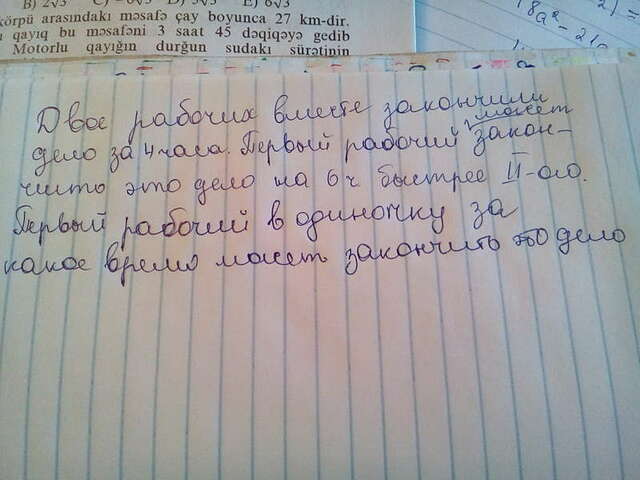 B) 2√3 C) 6√3 D) 3√3 E) 8√3
körpü arasındakı məsafə çay boyunca 27 km-dir.
qayıq bu məsafəni 3 saat 45 dəqiqəyə gedib
Motorlu qayığın durğun sudakı sürətinin
18a² - 21a
Двое рабочих вместе закончили
может
дело за 4 часа. Первый рабочий закон-
чить это дело на 6 ч быстрее II-ого.
Первый рабочий в одиночку за
какое время может закончить это дело